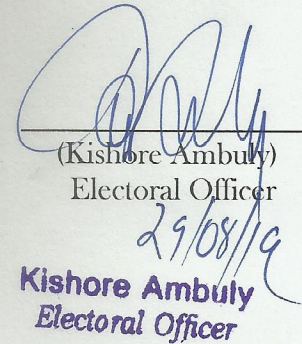 (Kishore Ambuly)
Electoral Officer
29/08/19
Kishore Ambuly
Electoral Officer